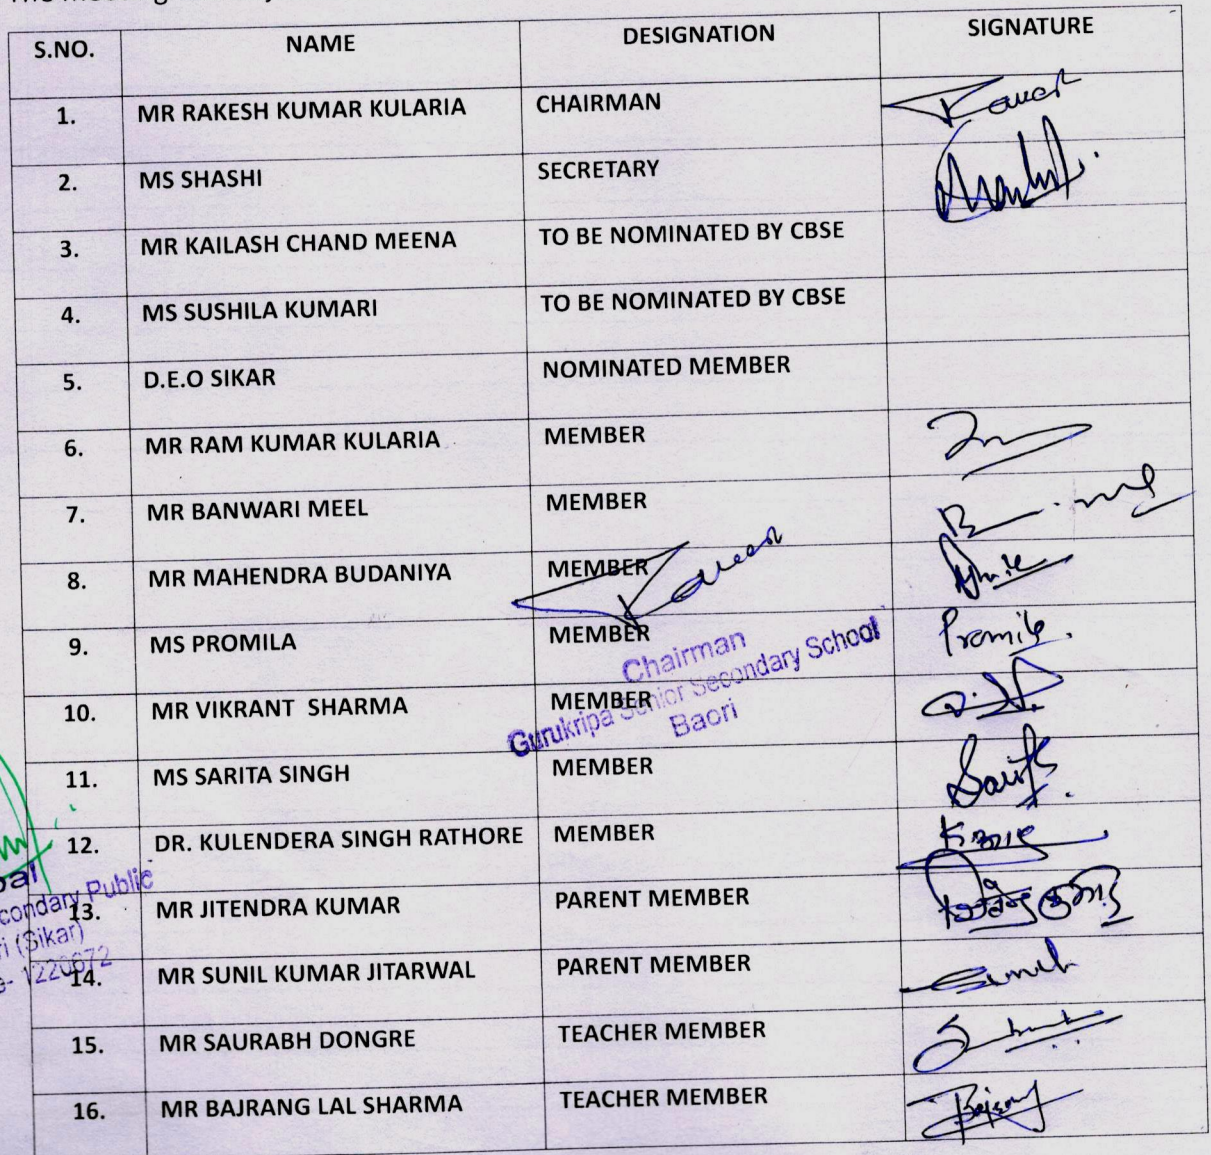 S.NO. NAME DESIGNATION SIGNATURE
1. MR RAKESH KUMAR KULARIA CHAIRMAN
2. MS SHASHI SECRETARY
3. MR KAILASH CHAND MEENA TO BE NOMINATED BY CBSE
4. MS SUSHILA KUMARI TO BE NOMINATED BY CBSE
5. D.E.O SIKAR NOMINATED MEMBER
6. MR RAM KUMAR KULARIA MEMBER
7. MR BANWARI MEEL MEMBER
8. MR MAHENDRA BUDANIYA MEMBER
9. MS PROMILA MEMBER Promila
10. MR VIKRANT SHARMA MEMBER
11. MS SARITA SINGH MEMBER
12. DR. KULENDERA SINGH RATHORE MEMBER
13. MR JITENDRA KUMAR PARENT MEMBER
14. MR SUNIL KUMAR JITARWAL PARENT MEMBER
15. MR SAURABH DONGRE TEACHER MEMBER
16. MR BAJRANG LAL SHARMA TEACHER MEMBER
Chairman
Gurukripa Senior Secondary School
Baori
Public
(Sikar)
1220672